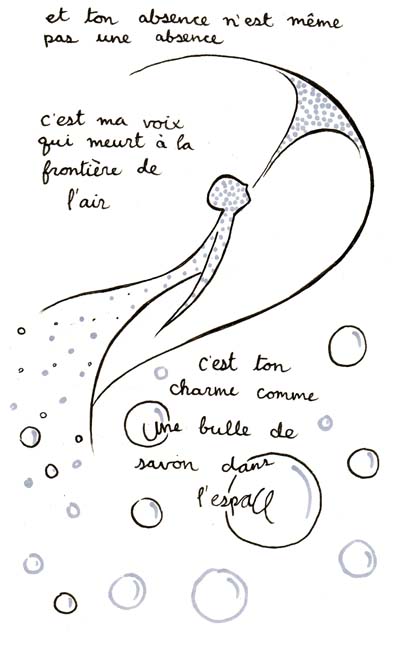 et ton absence n'est même
pas une absence
c'est ma voix
qui meurt à la
frontière de
l'air
c'est ton
charme comme
une bulle de
savon dans
l'espace